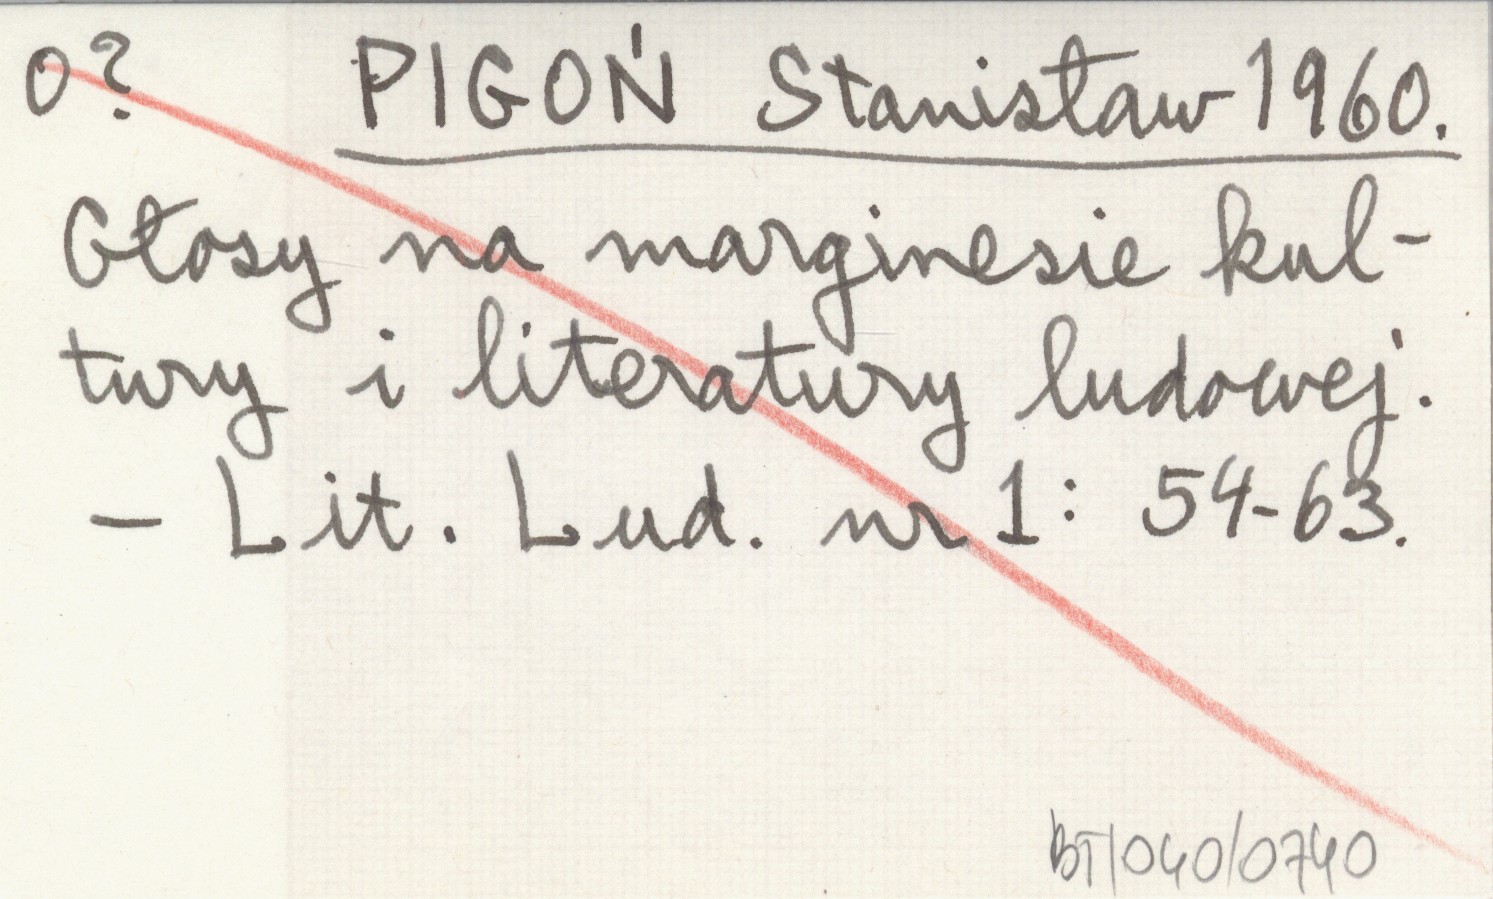 0? PIGOŃ Stanisław 1960.
Głosy na marginesie kul-
tury i literatury ludowej.
- Lit. Lud. nr 1: 54-63.
BT/040/0740